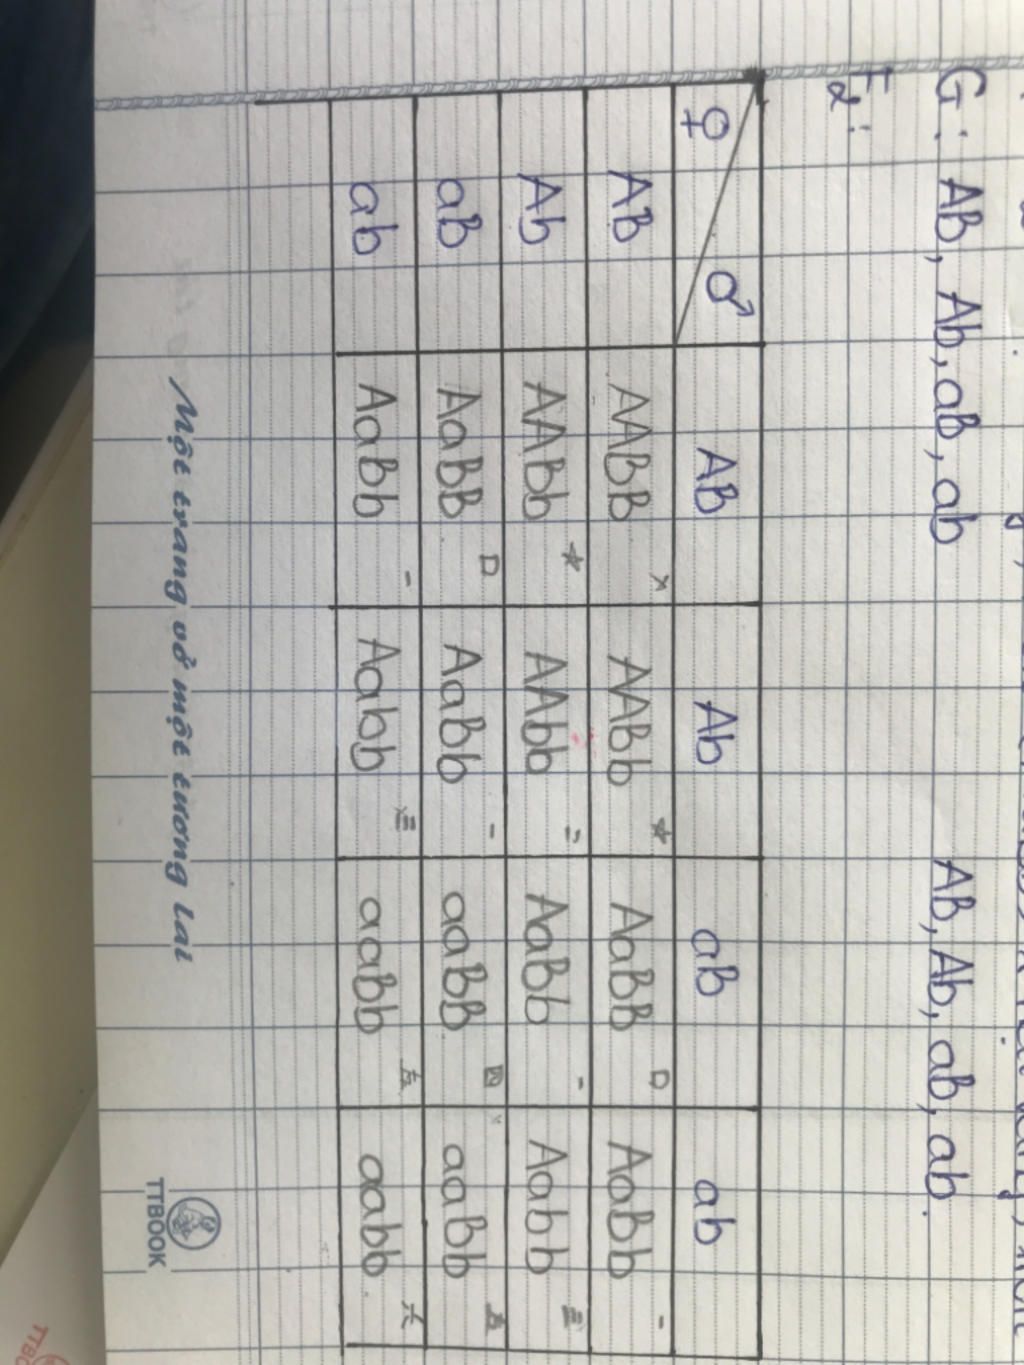 G: AB, Ab, aB, ab AB, Ab, aB, ab.
F2:
♀ ♂ AB Ab aB ab
AB AABB x AABb ☆ AaBB □ AaBb -
Ab AABb ☆ AAbb = AaBb - Aabb 三
aB AaBB □ AaBb - aaBB 四 aaBb 五
ab AaBb - Aabb 三 aaBb 五 aabb 六
Một trang vở một tương lai
TTBOOK